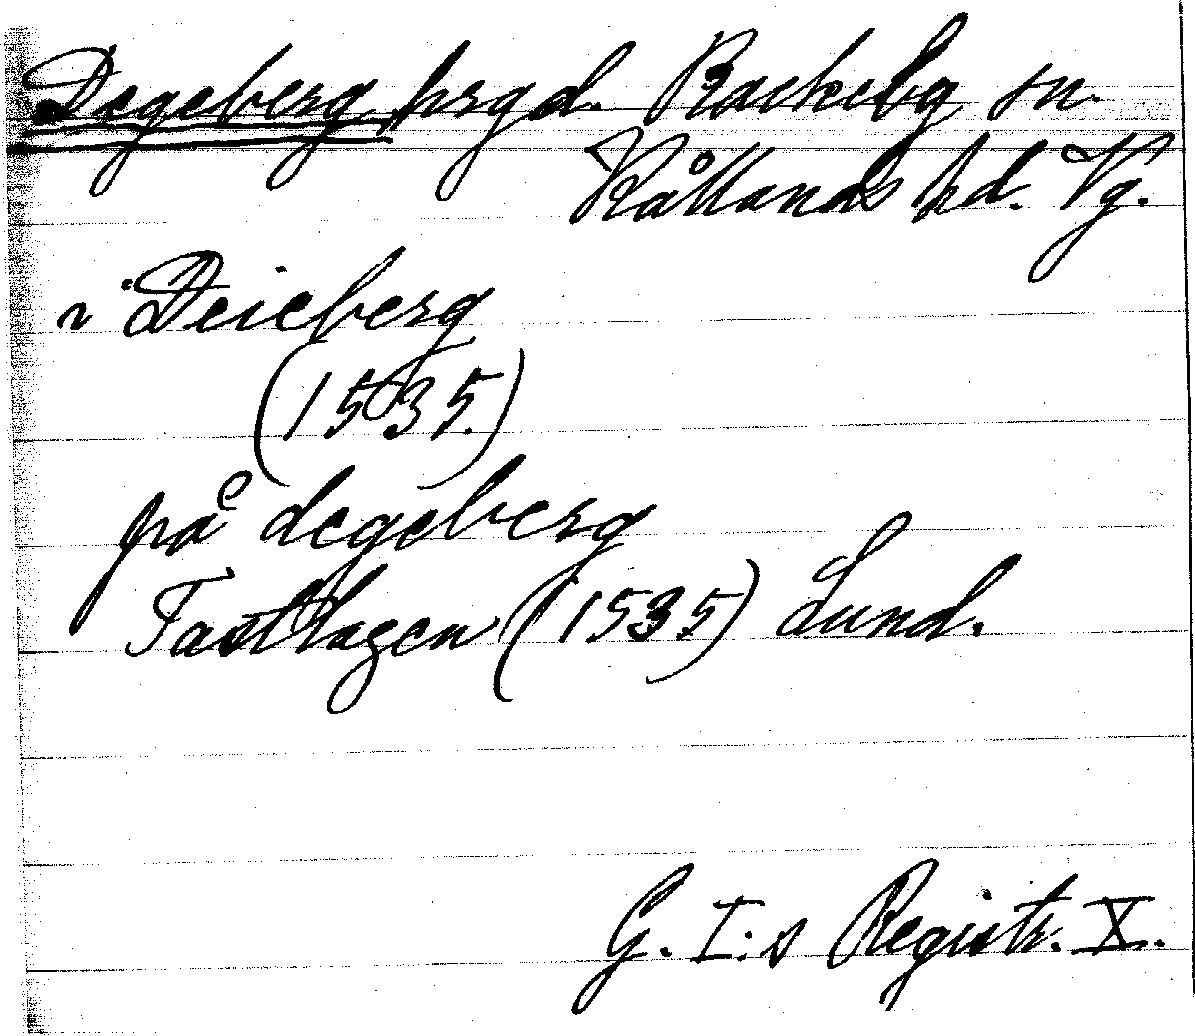 Degeberg hrgd. Rackeby sn.
Kållands hd. Vg.
i Deieberg
(1535.)
på degeberg
Fastlagen (1535) Lund.
G. I:s Registr. X.